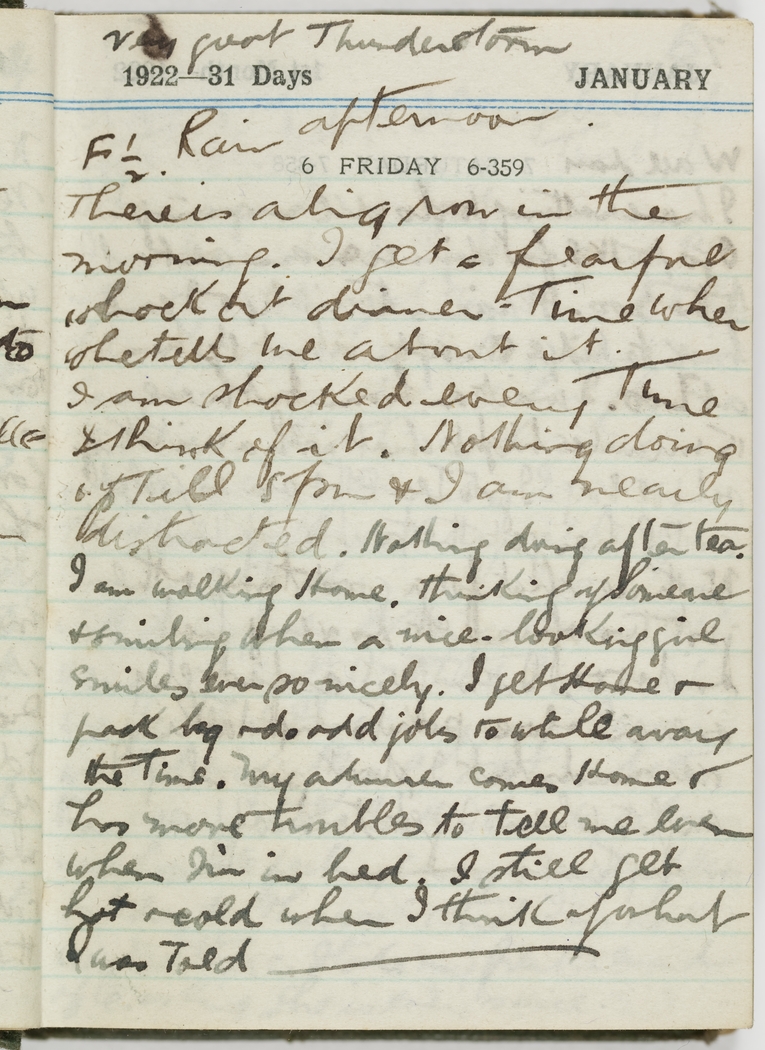 very great Thunderstorm
1922—31 Days JANUARY
F 1/2. Rain afternoon.
6 FRIDAY 6-359
There is a big row in the
morning. I get a fearful
shock at dinner-Time when
she tells me about it.
I am shocked every Time
I think of it. Nothing doing
till 5pm & I am nearly
distracted. Nothing doing after tea.
I am walking Home, thinking of Someone
& smiling when a nice-looking girl
smiles ever so nicely. I get Home &
pack bag & do odd jobs to while away
the Time. My admirer comes Home &
has more troubles to tell me even
when I'm in bed. I still get
hot & cold when I think of what
I was Told
to